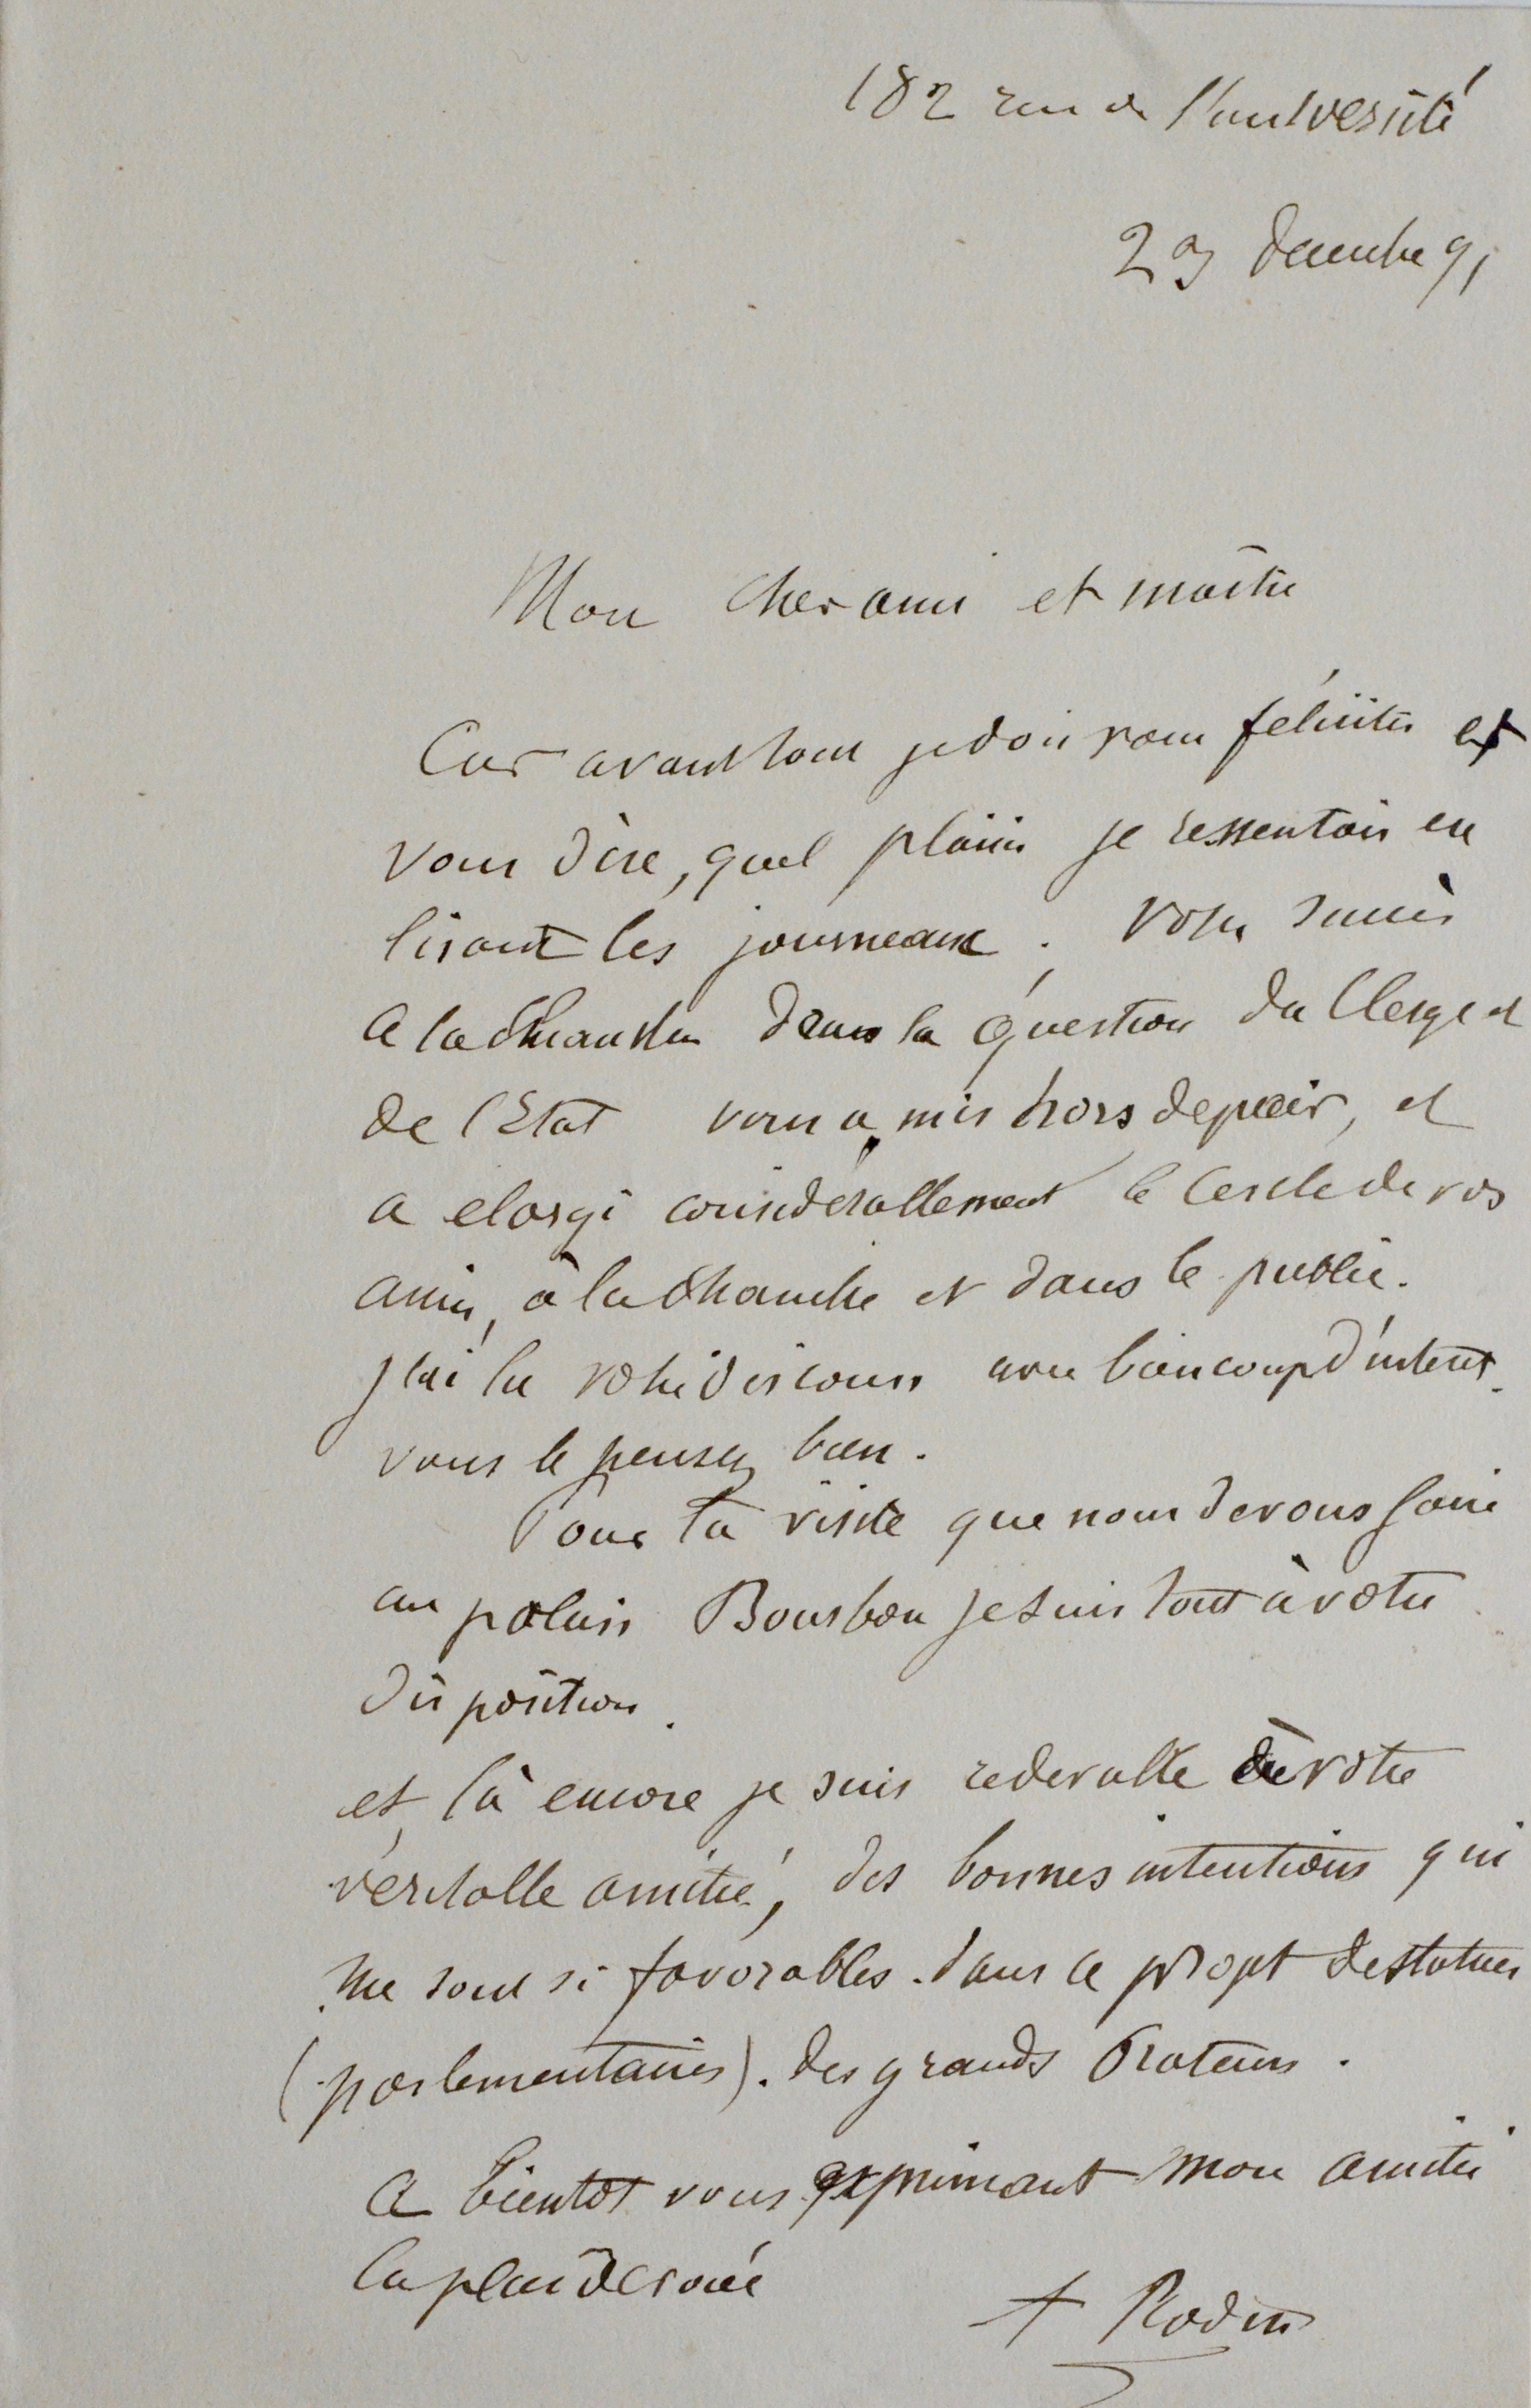 182 rue de l'université
23 decembre 91
Mon cher ami et maître
Car avant tout je dois vous féliciter et
vous dire, quel plaisir je ressentais en
lisant les journeaux. Votre succès
a la Chambre dans la question du Clergé et
de l'Etat vous a mis hors de pair, et
a elargi considerablement le Cercle de vos
amis, à la Chambre et dans le public.
J'ai lu votre discours avec beaucoup d'interet
vous le pensez bien.
Pour la visite que nous devons faire
au palais Bourbon je suis tout à votre
disposition.
et là encore je suis redevable de votre
véritable amitié, des bonnes intentions qui
me sont si favorables. dans ce projet de statues
(parlementaires). des grands Orateurs.
a bientot vous exprimant mon amitié
la plus devouée
A Rodin